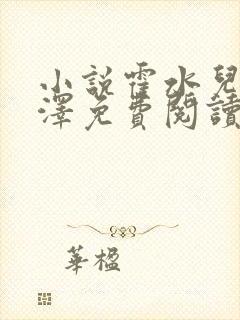 小說霍水兒
澤免費閱讀
華楹